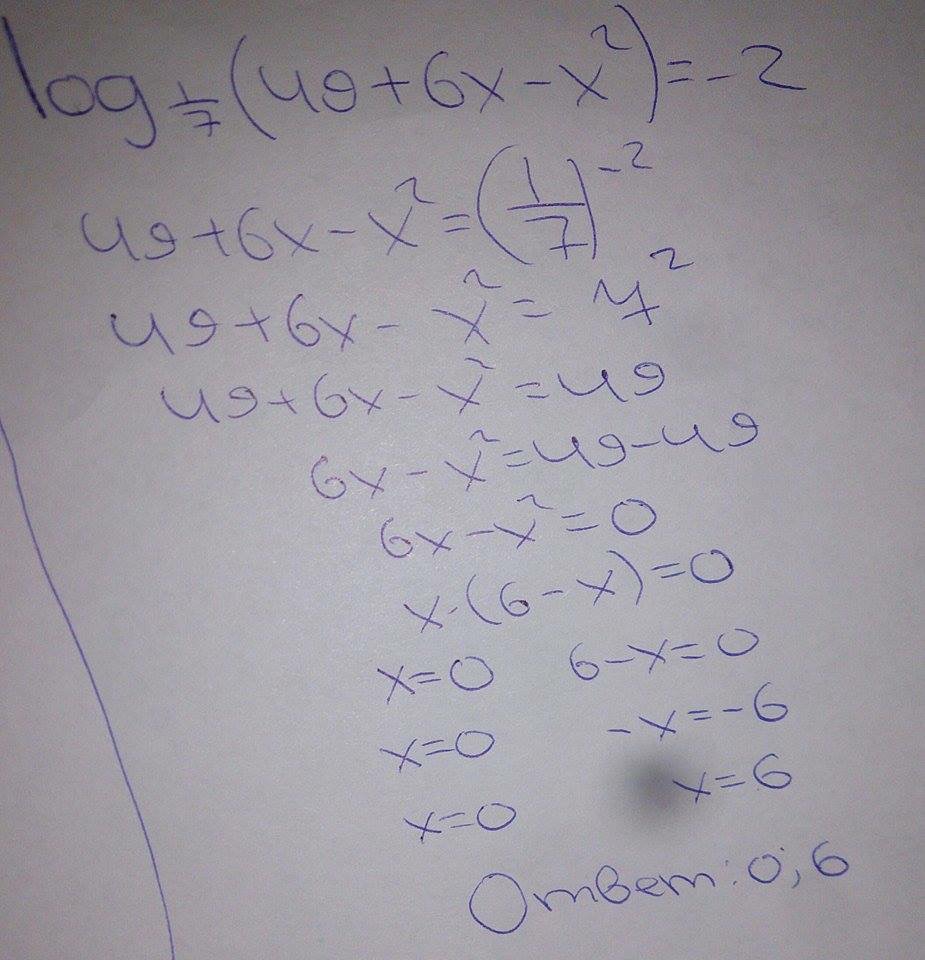 log_{1/7}(49+6x-x²)=-2
49+6x-x²=(1/7)⁻²
49+6x-x²=7²
49+6x-x²=49
6x-x²=49-49
6x-x²=0
x·(6-x)=0
x=0 6-x=0
x=0 -x=-6
x=0 x=6
Ответ: 0; 6